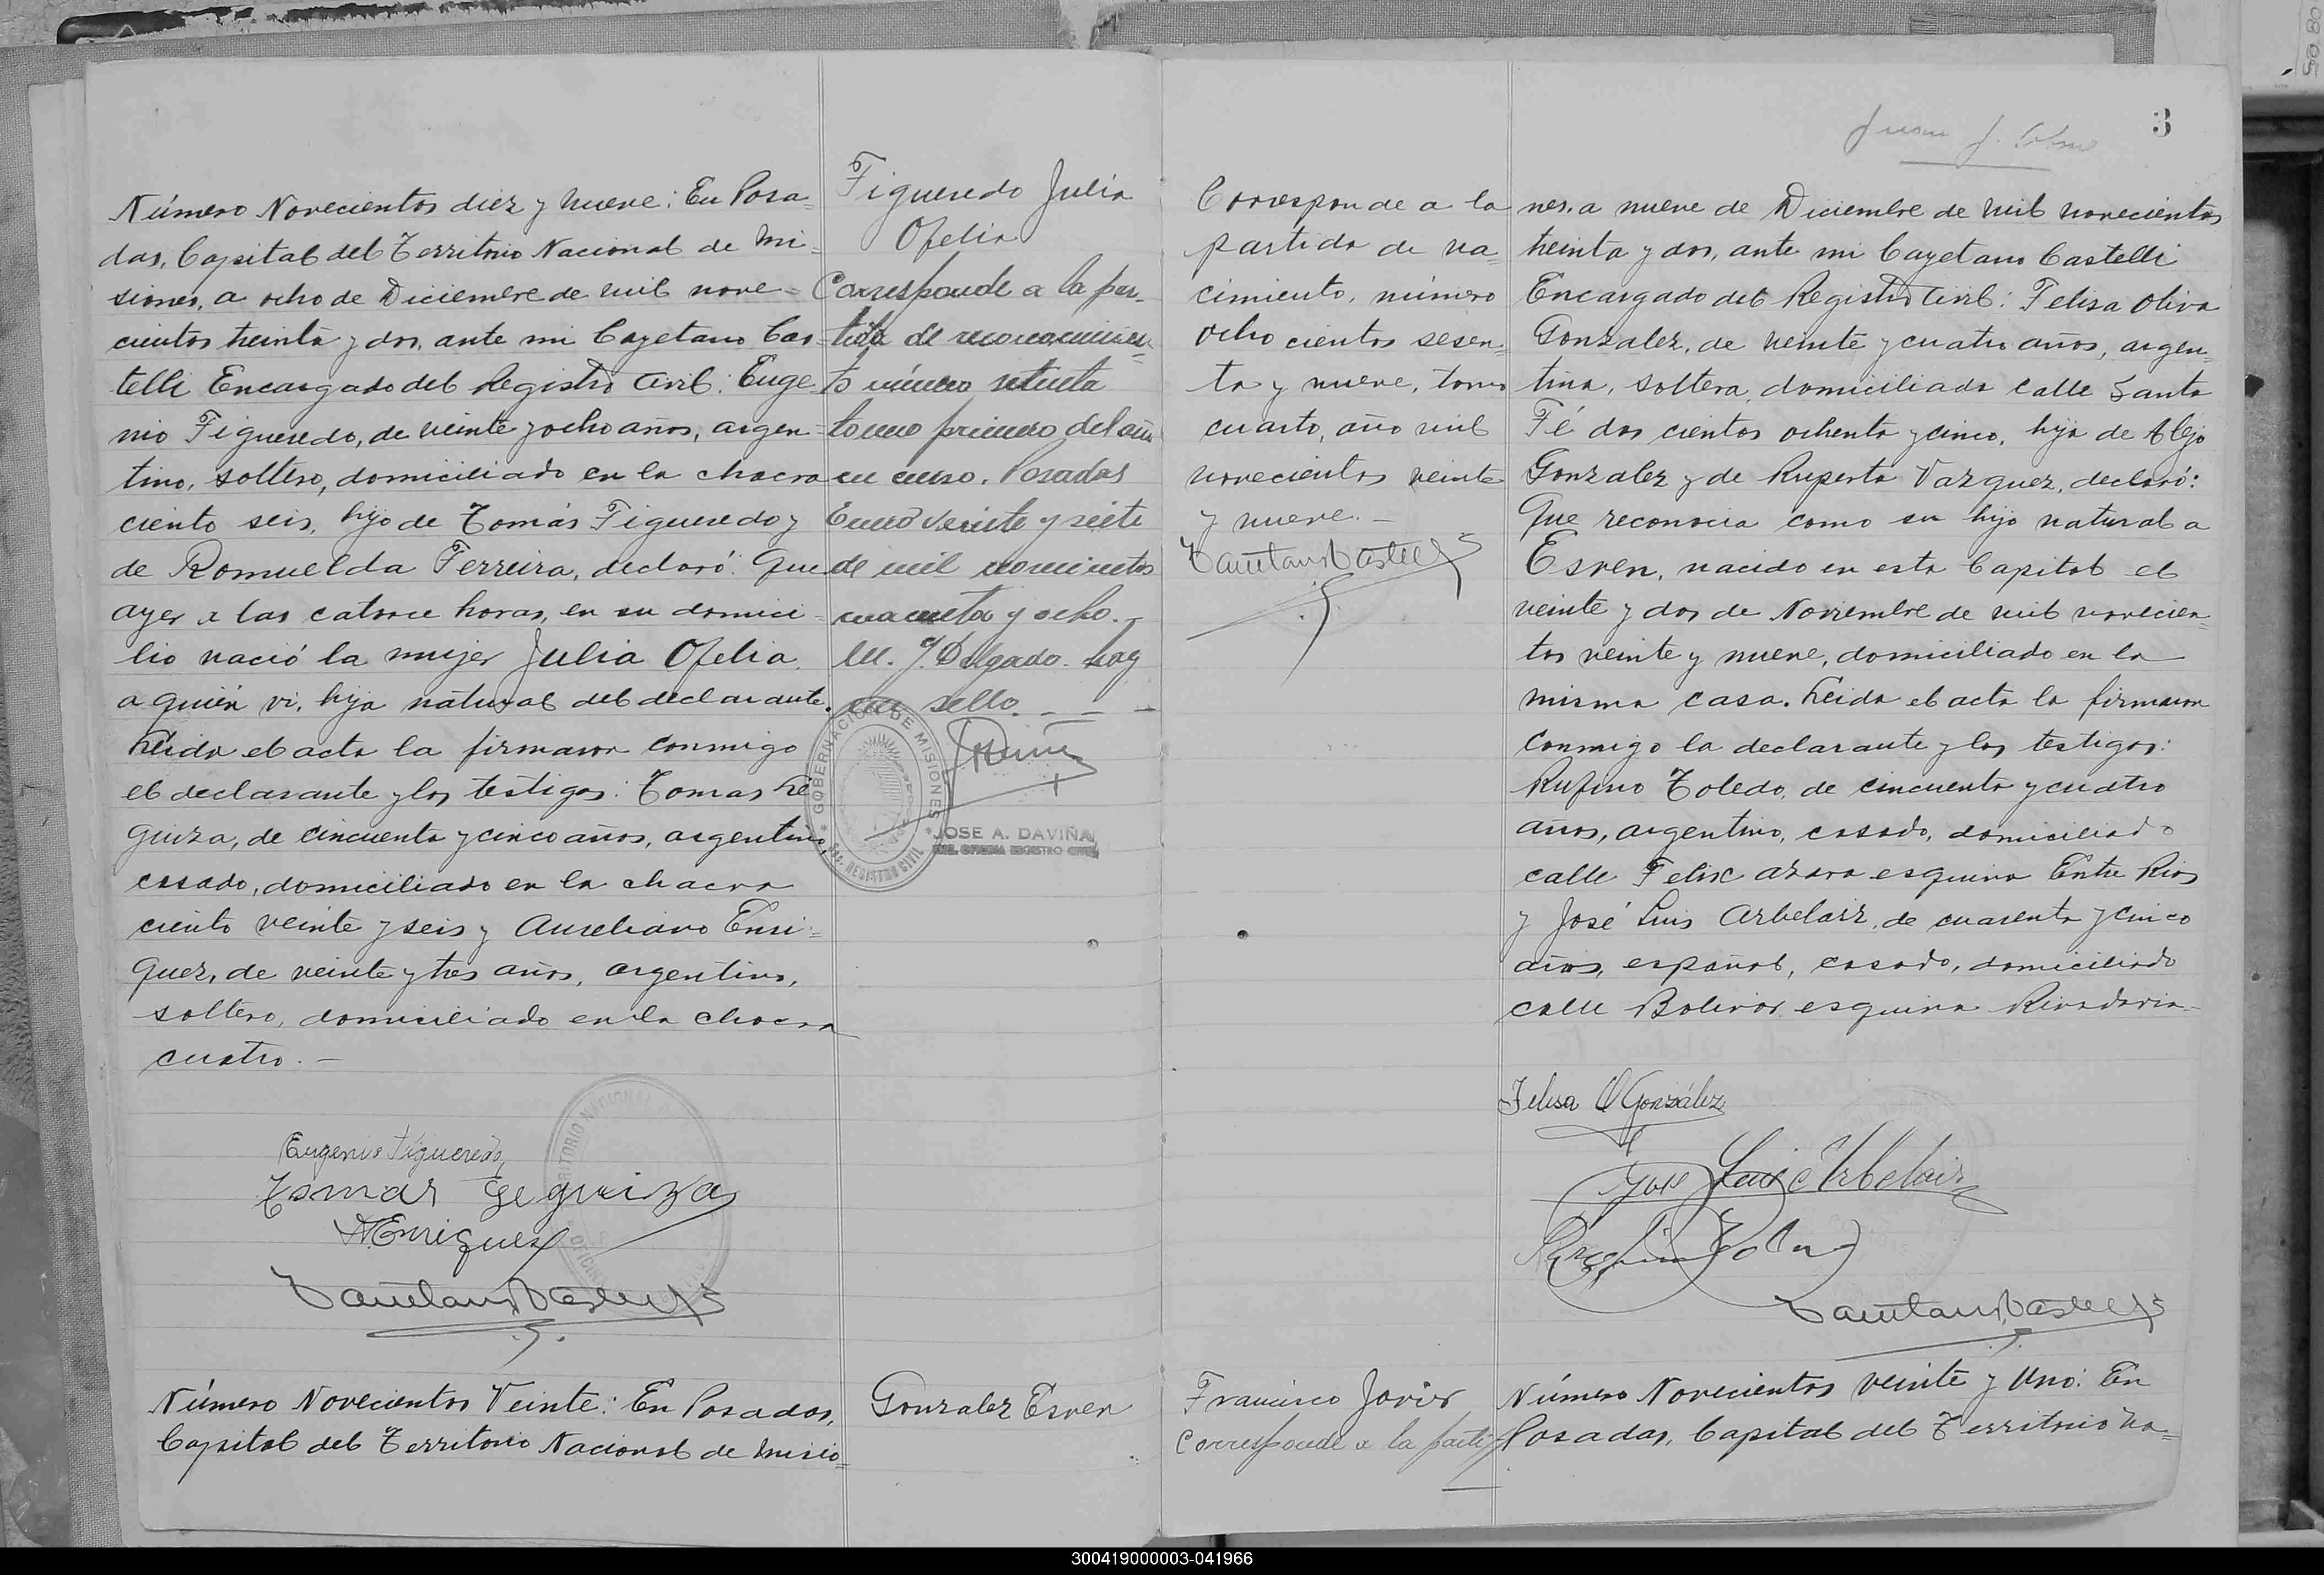 Número Novecientos diez y nueve: En Posa=
das, Capital del Territorio Nacional de Mi=
siones, a ocho de Diciembre de mil nove=
cientos treinta y dos, ante mi Cayetano Cas=
telli Encargado del Registro Civil: Euge=
nio Figueredo, de veinte y ocho años, argen=
tino, soltero, domiciliado en la chacra
ciento seis, hijo de Tomás Figueredo y
de Romuelda Ferreira, declaró: Que
ayer a las catorce horas, en su domici=
lio nació la mujer Julia Ofelia,
a quién vi, hija natural del declarante.
Leida el acta la firmaron conmigo
el declarante y los testigos: Tomas Le
guiza, de cincuenta y cinco años, argentino,
casado, domiciliado en la chacra
ciento veinte y seis y Aureliano Enri=
quez, de veinte y tres años, argentino,
soltero, domiciliado en la chacra
cuatro.-
Eugenio Figueredo
Tomas Leguiza
A Enriquez
Figueredo Julia
Ofelia
Corresponde a la par=
tida de reconocimien=
to número setenta
tomo primero del año
en curso. Posadas
Enero veinte y siete
de mil novecientos
cuarenta y ocho.-
M. J. Delgado. hay
un sello. - - -
GOBERNACION DE MISIONES
REGISTRO CIVIL
JOSE A. DAVIÑA
OFICINA REGISTRO CIVIL
Número Novecientos Veinte: En Posadas,
Capital del Territorio Nacional de Misio=
Gonzalez Esven
3
Corresponde a la
partida de na=
cimiento, número
ocho cientos sesen=
ta y nueve, tomo
cuarto, año mil
novecientos veinte
y nueve.-
nes, a nueve de Diciembre de mil novecientos
treinta y dos, ante mi Cayetano Castelli
Encargado del Registro Civil: Felisa Oliva
Gonzalez, de veinte y cuatro años, argen=
tina, soltera, domiciliada calle Santa
Fé dos cientos ochenta y cinco, hija de Alejo
Gonzalez y de Ruperta Vazquez, declaró:
Que reconocia como su hijo natural a
Esven, nacido en esta Capital el
veinte y dos de Noviembre de mil novecien=
tos veinte y nueve, domiciliado en la
misma casa. Leida el acta la firmaron
conmigo la declarante y los testigos:
Rufino Toledo, de cincuenta y cuatro
años, argentino, casado, domiciliado
calle Felix Azara esquina Entre Rios
y José Luis Arbelaiz, de cuarenta y cinco
años, español, casado, domiciliado
calle Bolivar esquina Rivadavia-
Felisa O González
José Luis Arbelaiz
Francisco Javier
Corresponde a la parti
Número Novecientos veinte y Uno: En
Posadas, Capital del Territorio Na=
300419000003-041966